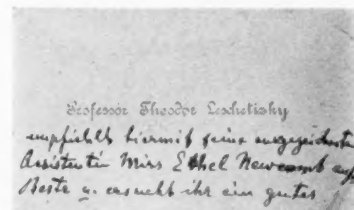 Professor Theodor Leschetizky
empfiehlt hiermit seine ausgezeichnete
Assistentin Miss Ethel Newcomb aufs
Beste u. ersucht ihr ein gutes